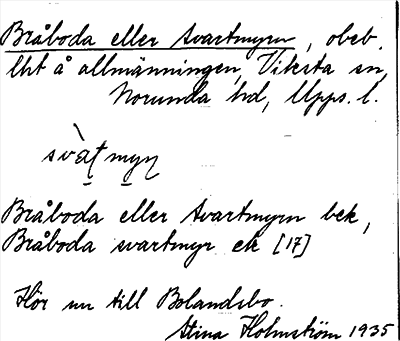 Bråboda eller Svartmyrn, obeb.
lht å allmänningen, Viksta sn,
Norunda hd, Upps. l.
svàt myn
Bråboda eller Svartmyrn bek,
Bråboda svartmyr ek [17]
Hör nu till Bolandsbo.
Stina Holmström 1935